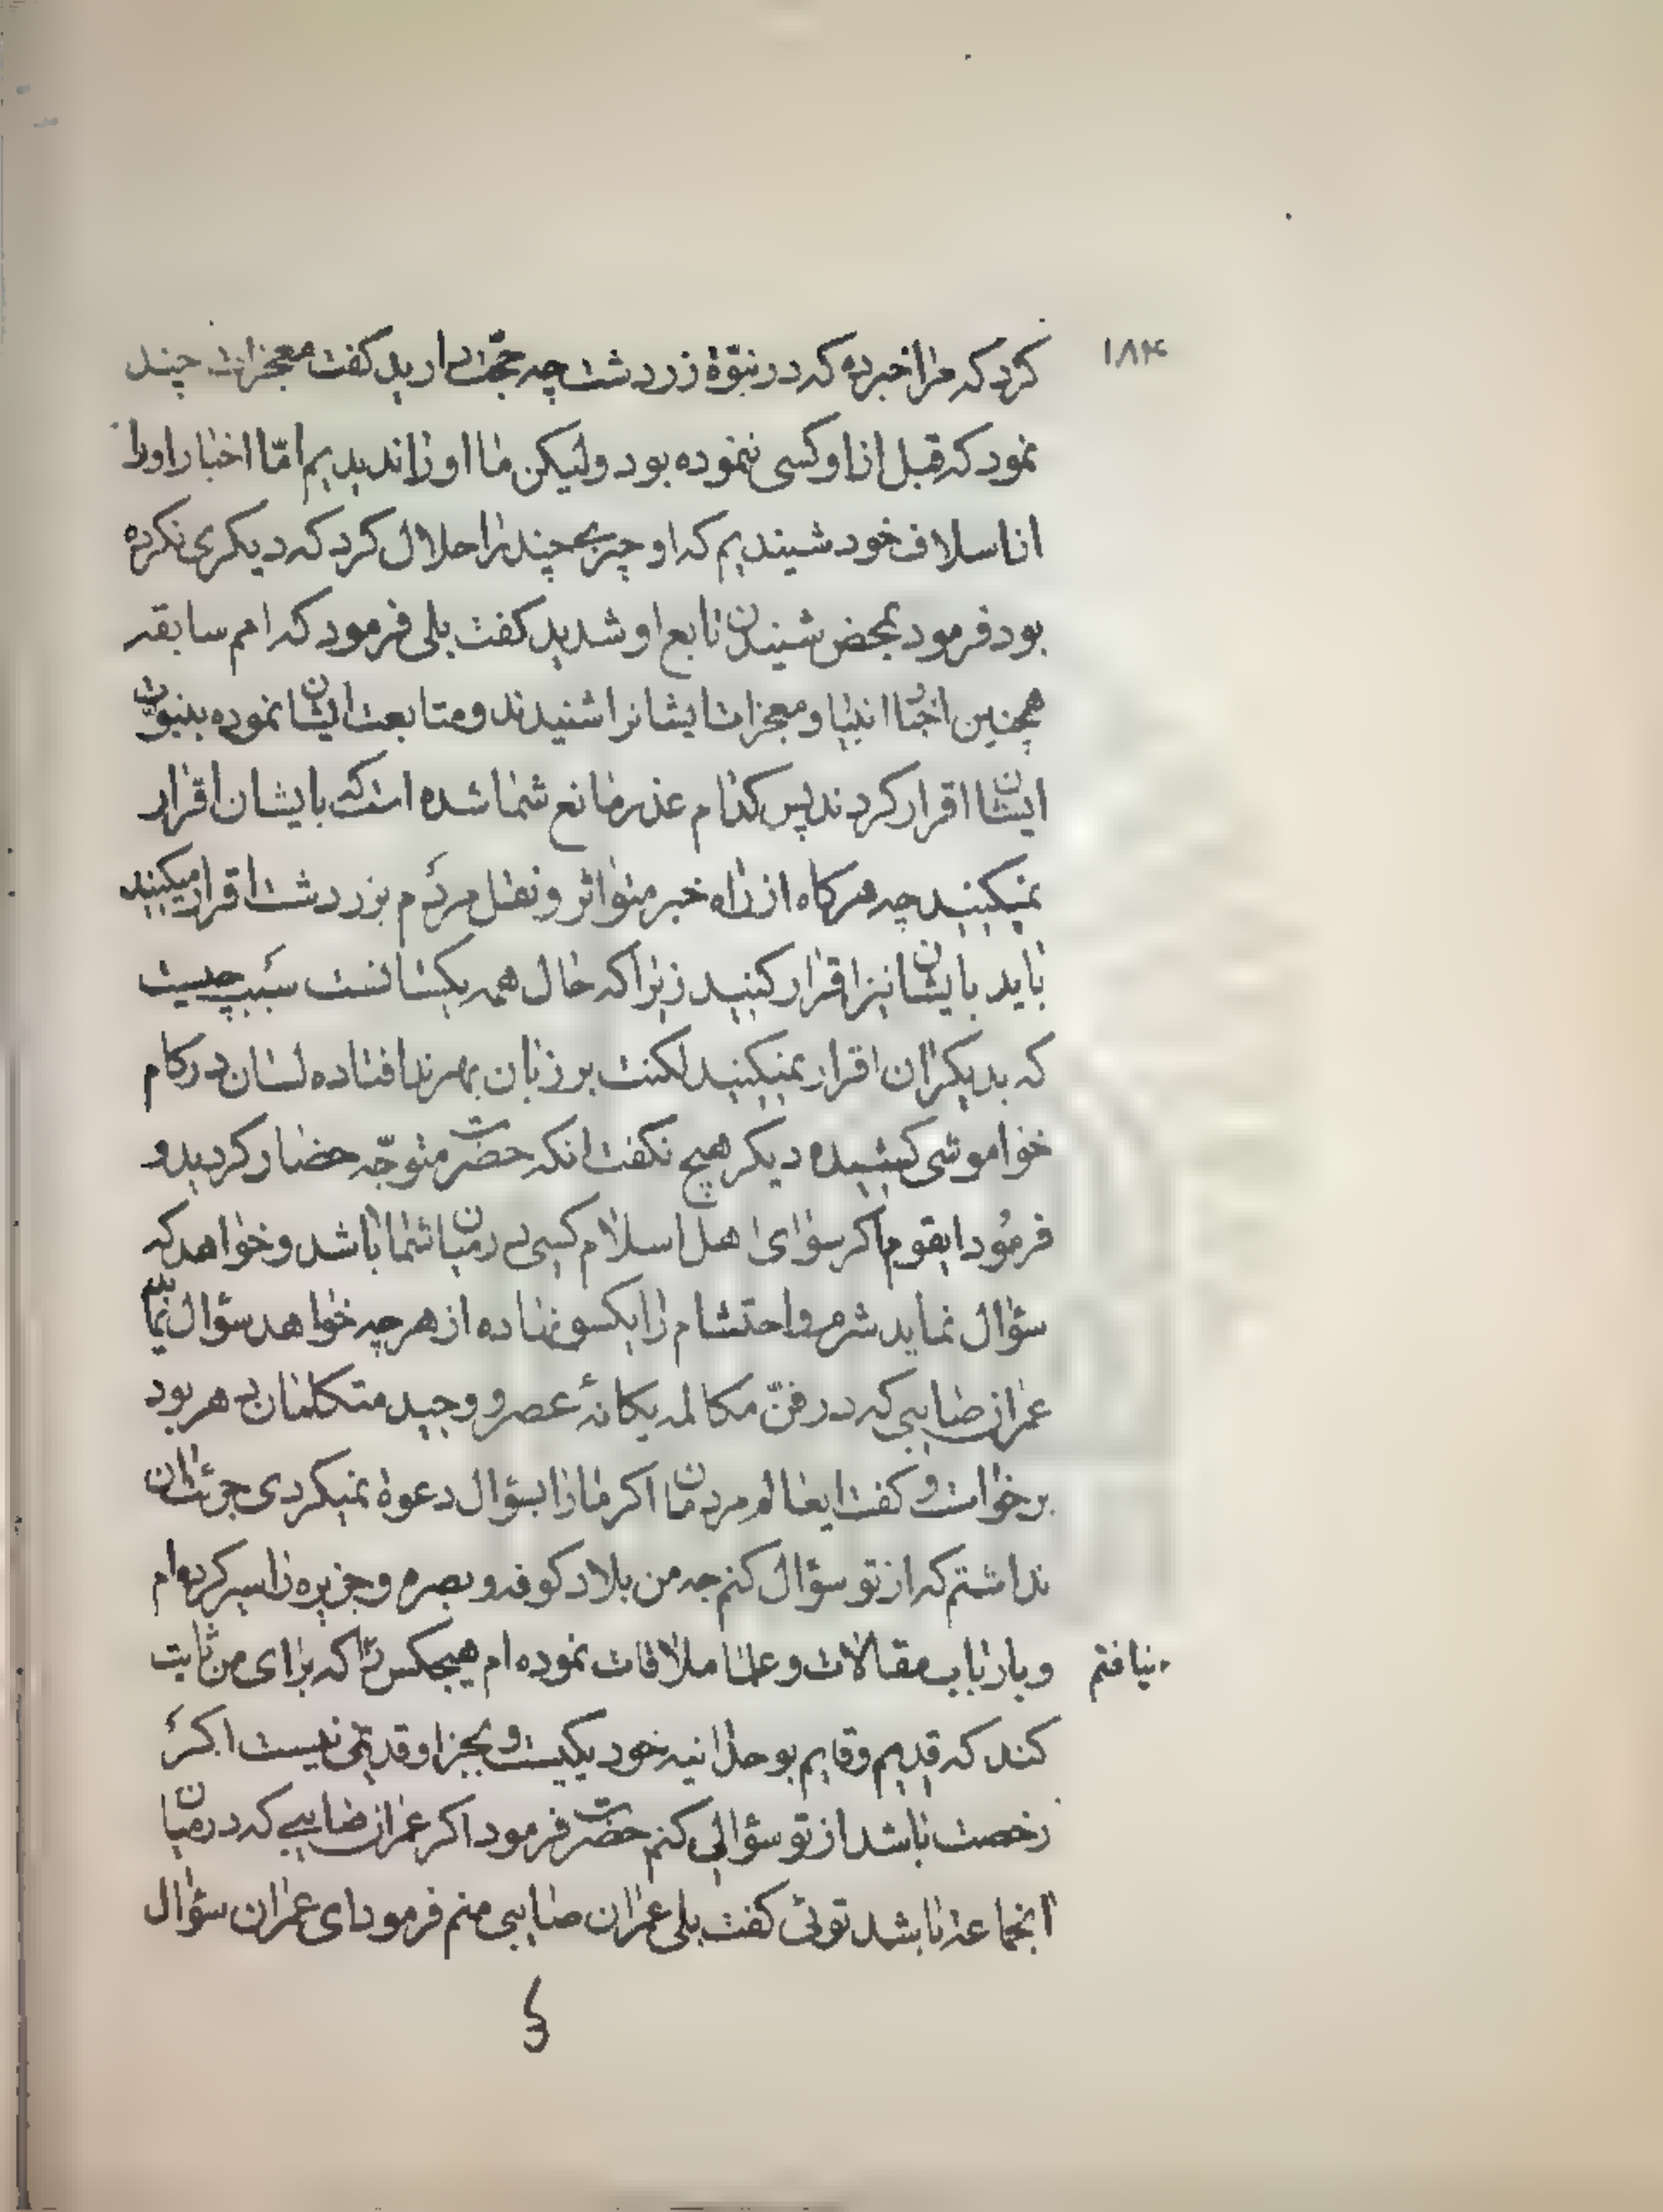 ۱۸۴
کرد که مرا خبر ده که در نبوّة زردشت چه حجّت دارید کفت معجزات چند
نمود که قبل از او کسی ننموده بود ولیکن ما او را ندیدیم امّا اخبار او را
از اسلاف خود شیندیم که او چیزی چند را حلال کرد که دیکری نکرده
بود فرمود بمحض شیندن تابع او شدید کفت بلی فرمود که امم سابقه
همچنین اخبار انبیا و معجزات ایشانرا شنیدند و متابعت ایشان نموده بنبوّت
ایشان اقرار کردند پس کدام عذر مانع شما شده است که بایشان اقرار
نمیکنید چه هرکاه از راه خبر متواتر و نقل مردم بزردشت اقرار میکنید
باید بایشان نیز اقرار کنید زیرا که حال همه یکسانست سبب چیست
که بدیکران اقرار نمیکنید لکنت بر زبان بهرند افتاده لسان در کام
خواموشی کشیده دیکر هیچ نکفت انکه حضرت متوجّه حضار کردید و
فرمود ایقوم اکر سوای اهل اسلام کسی در میان شما باشد و خواهد که
سؤال نماید شرم و احتشام را بکسو نهاده از هر چه خواهد سؤال نماید
عمران صابیی که در فنّ مکالمه یکانهٔ عصر و وحید متکلمان دهر بود
برخواست و کفت ایعالم مردمان اکر ما را بسؤال دعوة نمیکردی جرئت آن
نداشتم که از تو سؤال کنم چه من بلاد کوفه و بصره و جزیره را سیر کرده‌ام
و با ارباب مقالات و علما ملاقات نموده ام هیچکس را که برای من ثابت
نیافتم
کند که قدیم و قایم بوحدانیه خود یکیست و بجز او قدیمی نیست اکر
رخصت باشد از تو سؤالی کنم حضرت فرمود اکر عمران صابیی که در میان
اینجماعة باشد توئی کفت بلی عمران صابیی منم فرمود ای عمران سؤال